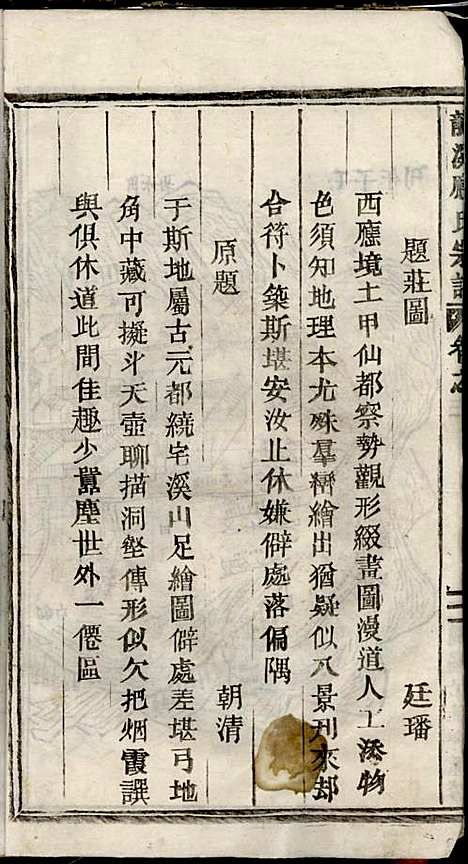 龍溪應氏宗譜 卷之
題莊圖 廷璠
西應境土甲仙都察勢觀形綴畫圖漫道人工添物
色須知地理本尤殊羣巒繪出猶疑似八景刋來却
合符卜築斯堪安汝止休嫌僻處落偏隅
原題 朝清
于斯地屬古元都繞宅溪山足繪圖僻處差堪弓地
角中藏可擬斗天壺聊描洞壑傳形似欠把烟霞譔
與俱休道此間佳趣少囂塵世外一僊區